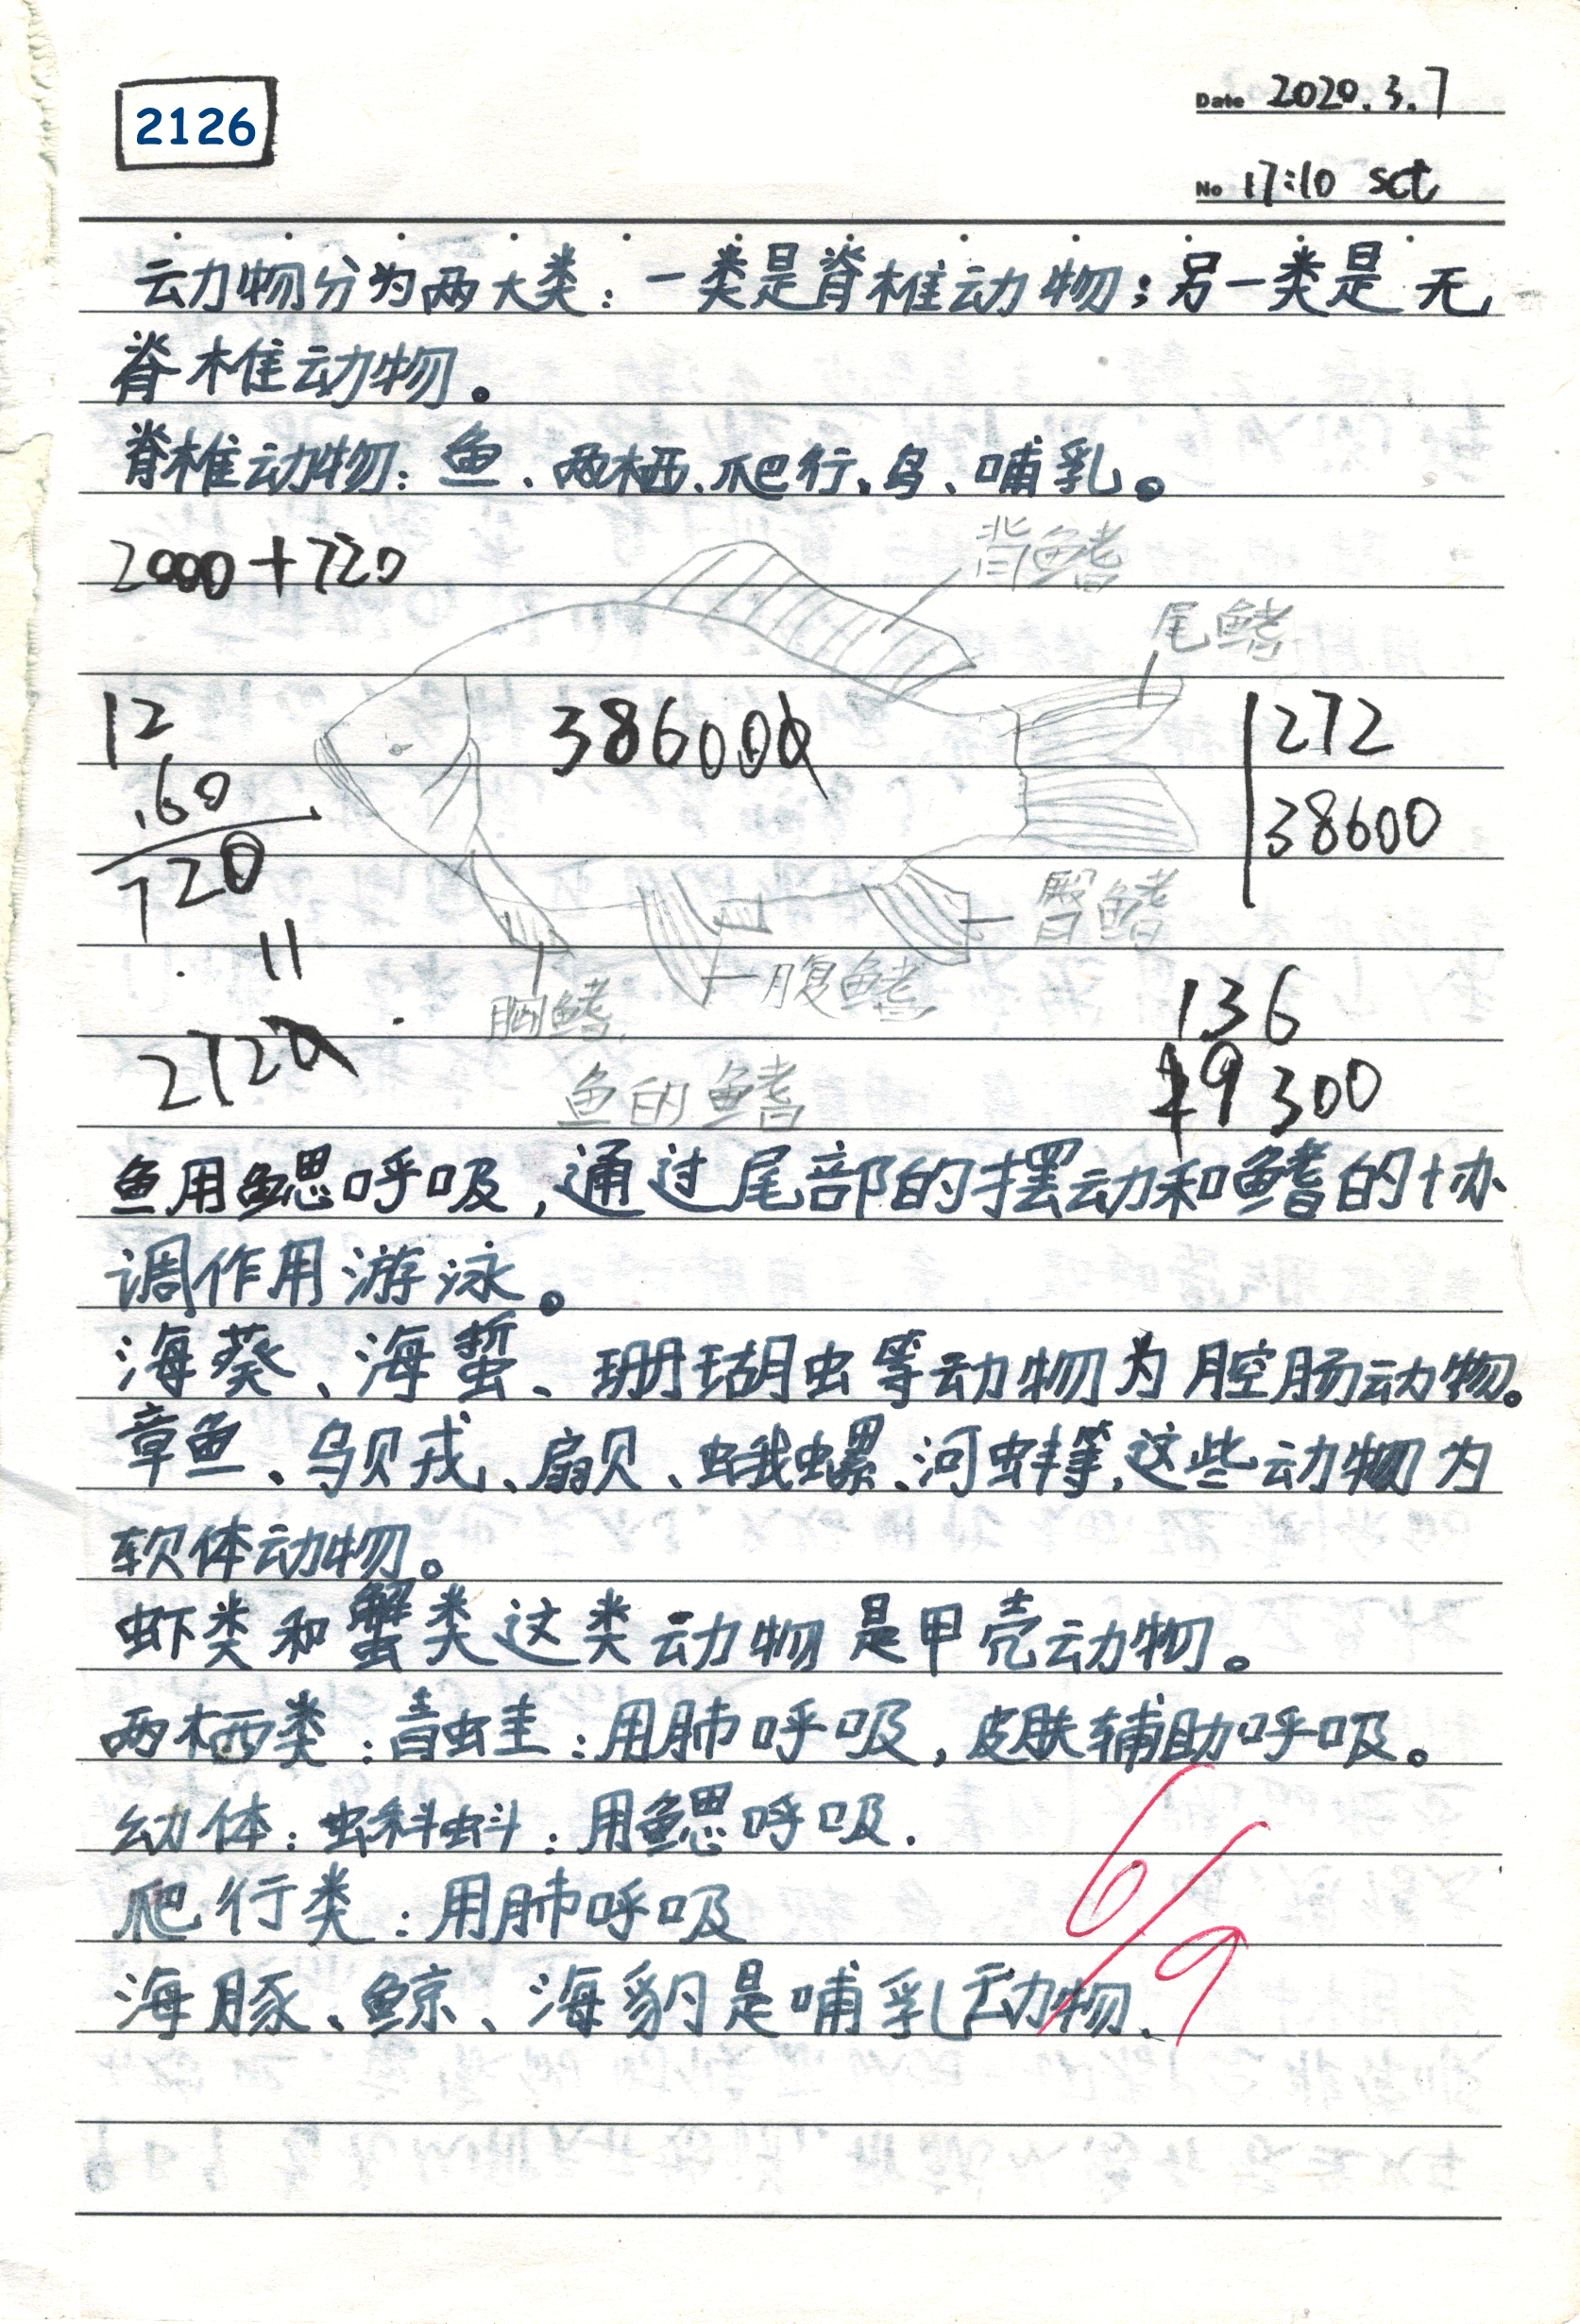 2126
Date 2020.3.7
No 17:10 sct
动物分为两大类：一类是脊椎动物；另一类是无
脊椎动物。
脊椎动物：鱼、两栖、爬行、鸟、哺乳。
2000+720
背鳍
尾鳍
12
60
720
11
2720
386000
272
38600
臀鳍
腹鳍
胸鳍
136
19300
鱼的鳍
鱼用鳃呼吸，通过尾部的摆动和鳍的协
调作用游泳。
海葵、海蜇、珊瑚虫等动物为腔肠动物。
章鱼、乌贼、扇贝、蛾螺、河蚌等，这些动物为
软体动物。
虾类和蟹类这类动物是甲壳动物。
两栖类：青蛙：用肺呼吸，皮肤辅助呼吸。
幼体：蝌蚪：用鳃呼吸.
爬行类：用肺呼吸
海豚、鲸、海豹是哺乳动物、
6/9